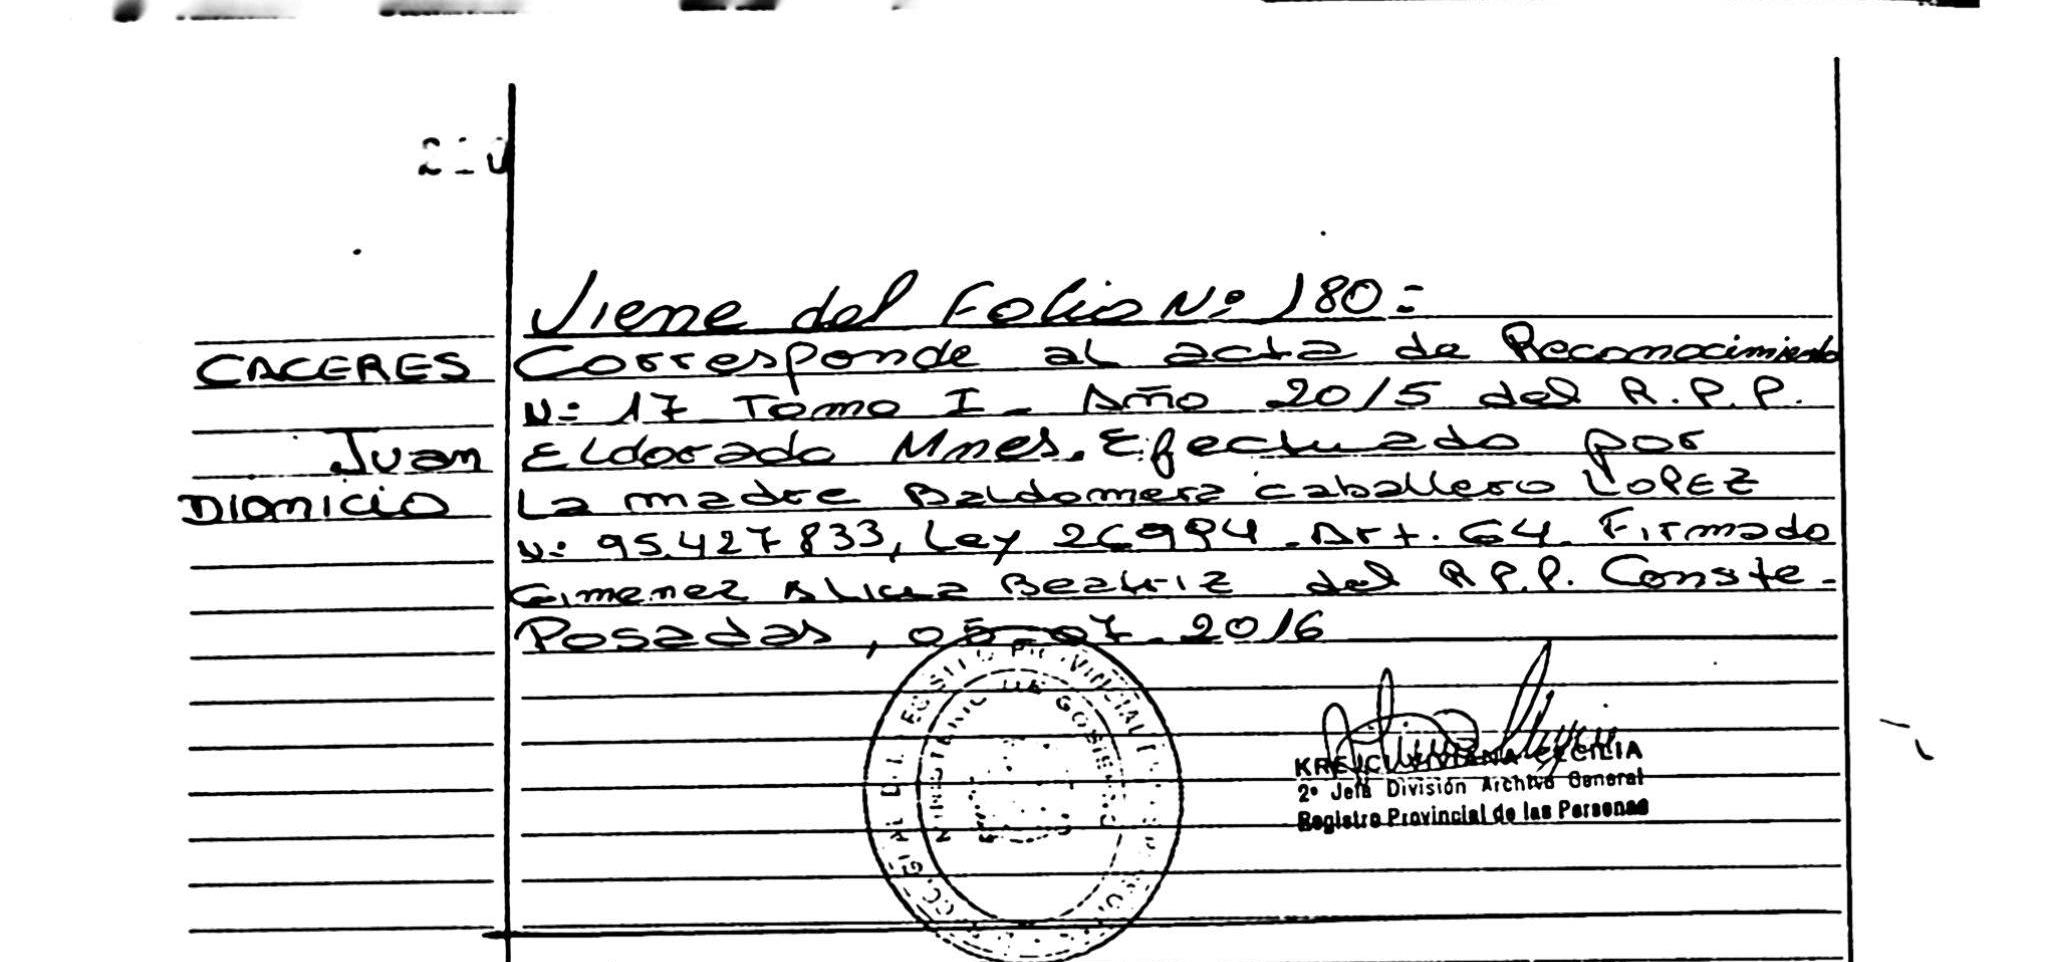 Viene del Folio Nº 180=
CACERES
Juan
DIONICIO
Corresponde al acta de Reconocimiento
Nº 17 Tomo I - Año 2015 del R.P.P.
Eldorado Mnes. Efectuado por
La madre Baldomera Caballero LOPEZ
Nº 95.427833, Ley 26994. Art. 64. Firmado
Gimenez Alicia Beatriz del R.P.P. Conste -
Posadas, 05-07-2016
KREJCI VIVIANA CECILIA
2º Jefa División Archivo General
Registro Provincial de las Personas